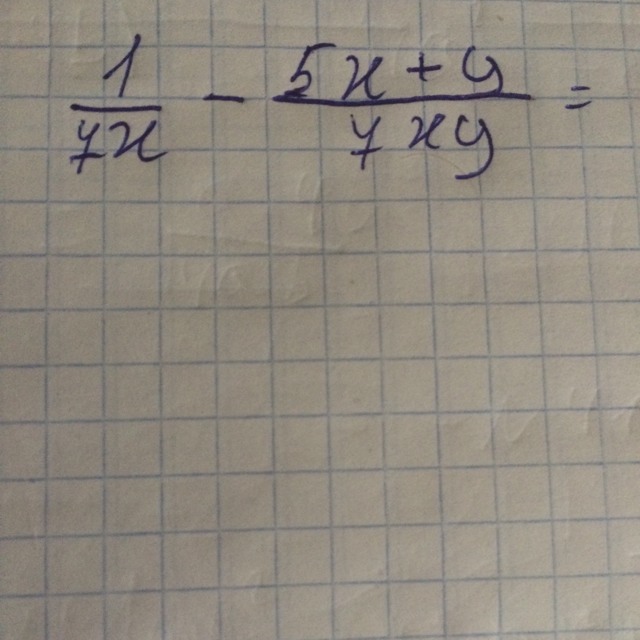 1/7x - 5x+y/7xy =